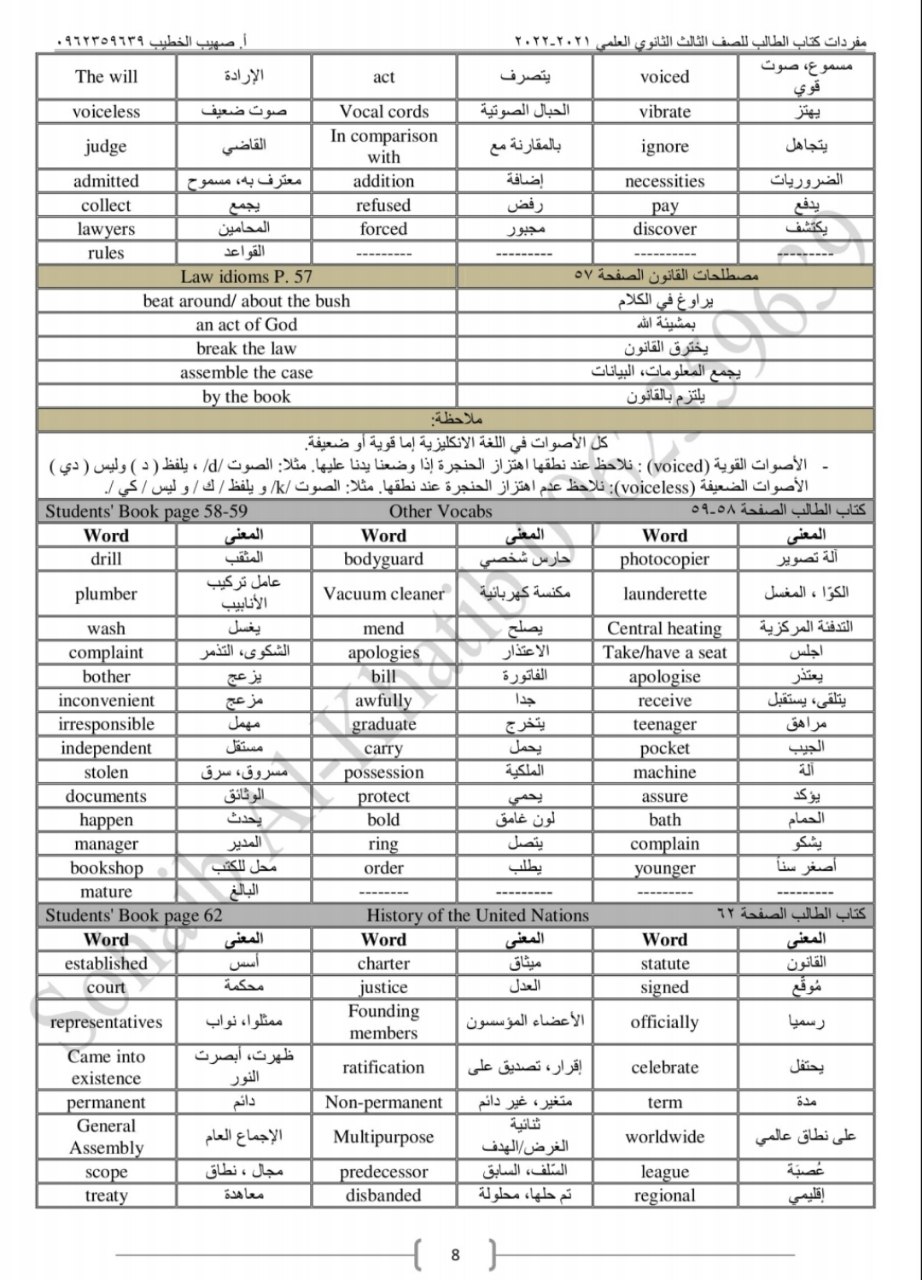 مفردات كتاب الطالب للصف الثالث الثانوي العلمي ٢٠٢١-٢٠٢٢ أ. صهيب الخطيب ٠٩٦٢٣٥٩٦٣٩
The will الإرادة act يتصرف voiced مسموع، صوت قوي
voiceless صوت ضعيف Vocal cords الحبال الصوتية vibrate يهتز
judge القاضي In comparison with بالمقارنة مع ignore يتجاهل
admitted معترف به، مسموح addition إضافة necessities الضروريات
collect يجمع refused رفض pay يدفع
lawyers المحامين forced مجبور discover يكتشف
rules القواعد --------- --------- ---------- ---------
Law idioms P. 57 مصطلحات القانون الصفحة ٥٧
beat around/ about the bush يراوغ في الكلام
an act of God بمشيئة الله
break the law يخترق القانون
assemble the case يجمع المعلومات، البيانات
by the book يلتزم بالقانون
ملاحظة:
كل الأصوات في اللغة الانكليزية إما قوية أو ضعيفة.
- الأصوات القوية (voiced) : نلاحظ عند نطقها اهتزاز الحنجرة إذا وضعنا يدنا عليها. مثلا: الصوت /d/ ، يلفظ ( د ) وليس ( دي )
الأصوات الضعيفة (voiceless): نلاحظ عدم اهتزاز الحنجرة عند نطقها. مثلا: الصوت /k/ و يلفظ / ك / و ليس / كي /.
Students' Book page 58-59 Other Vocabs كتاب الطالب الصفحة ٥٨-٥٩
Word المعنى Word المعنى Word المعنى
drill المثقب bodyguard حارس شخصي photocopier آلة تصوير
plumber عامل تركيب الأنابيب Vacuum cleaner مكنسة كهربائية launderette الكوّا ، المغسل
wash يغسل mend يصلح Central heating التدفئة المركزية
complaint الشكوى، التذمر apologies الاعتذار Take/have a seat اجلس
bother يزعج bill الفاتورة apologise يعتذر
inconvenient مزعج awfully جدا receive يتلقى، يستقبل
irresponsible مهمل graduate يتخرج teenager مراهق
independent مستقل carry يحمل pocket الجيب
stolen مسروق، سرق possession الملكية machine آلة
documents الوثائق protect يحمي assure يؤكد
happen يحدث bold لون غامق bath الحمام
manager المدير ring يتصل complain يشكو
bookshop محل للكتب order يطلب younger أصغر سناً
mature البالغ -------- --------- --------- ---------
Students' Book page 62 History of the United Nations كتاب الطالب الصفحة ٦٢
Word المعنى Word المعنى Word المعنى
established أسس charter ميثاق statute القانون
court محكمة justice العدل signed مُوقّع
representatives ممثلوا، نواب Founding members الأعضاء المؤسسون officially رسميا
Came into existence ظهرت، أبصرت النور ratification إقرار، تصديق على celebrate يحتفل
permanent دائم Non-permanent متغير، غير دائم term مدة
General Assembly الإجماع العام Multipurpose ثنائية الغرض/الهدف worldwide على نطاق عالمي
scope مجال ، نطاق predecessor السّلف، السابق league عُصبَة
treaty معاهدة disbanded تم حلها، محلولة regional إقليمي
8
Sohaib Al-Khatib 0962359639